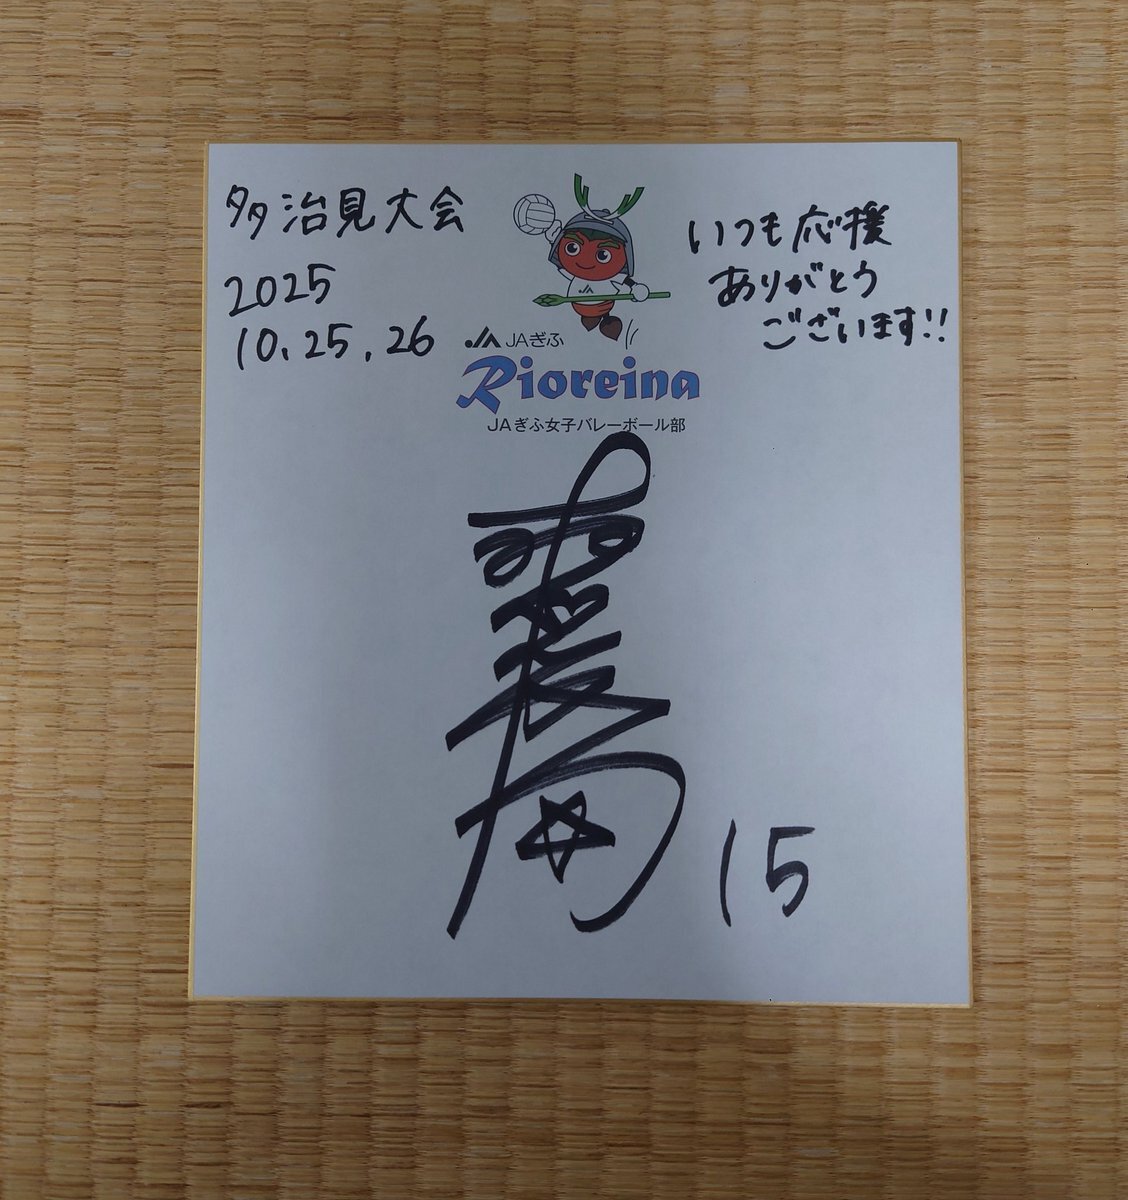 多治見大会
2025
10.25.26
いつも応援
ありがとう
ございます!!
JA
JA JAぎふ
Rioreina
JAぎふ女子バレーボール部
15